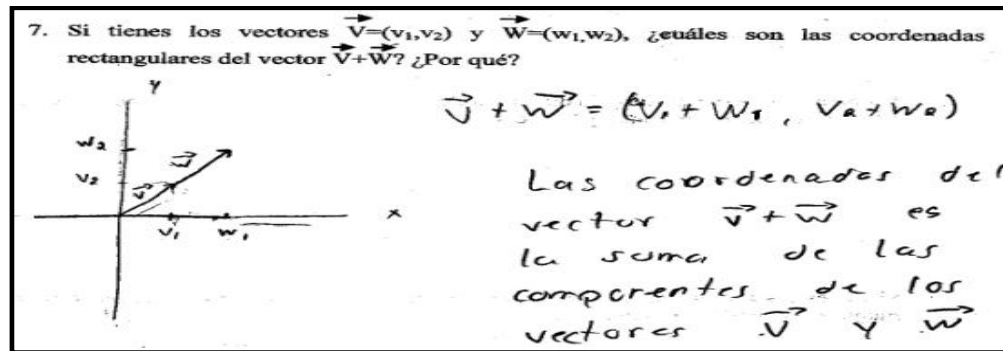 7. Si tienes los vectores V=(v₁,v₂) y W=(w₁,w₂), ¿cuáles son las coordenadas
rectangulares del vector V+W? ¿Por qué?
y
V + W = (V₁ + W₁, V₂ + W₂)
w₂
w
v₂
v
x
v₁
w₁
Las coordenadas del
vector V + W es
la suma de las
componentes de los
vectores V y W